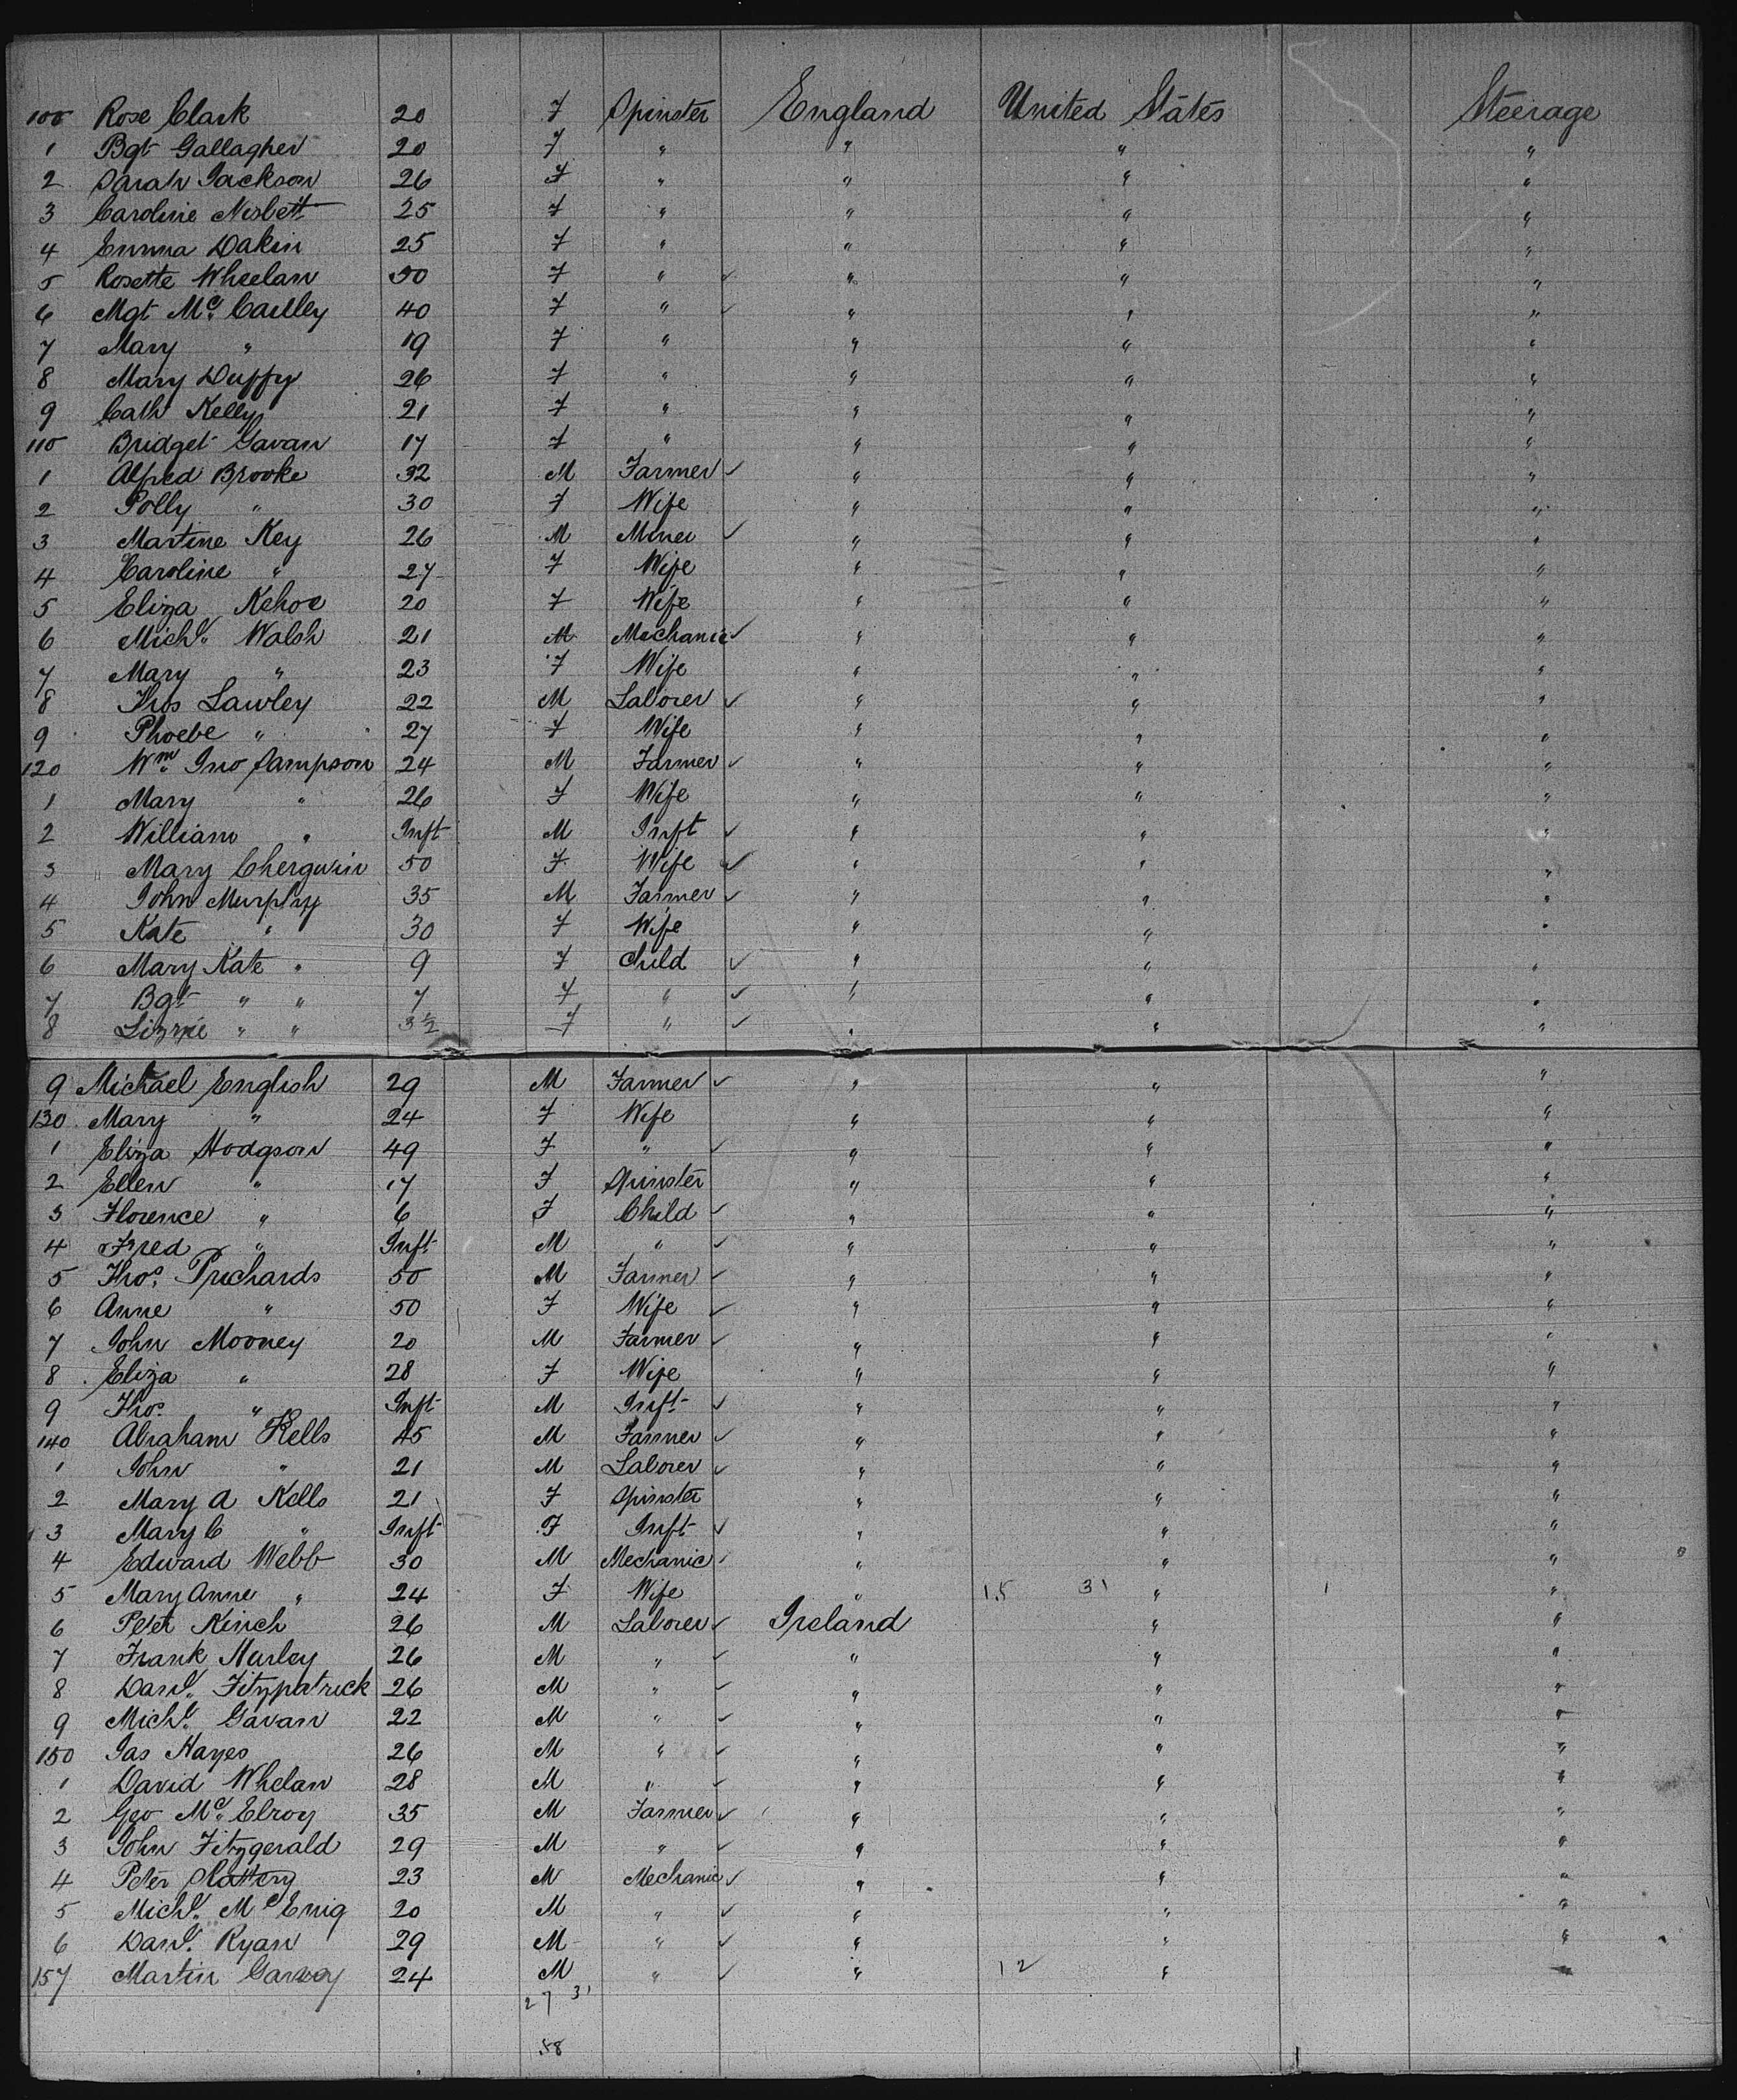 100 Rose Clark 20 F Spinster England United States Steerage
1 Bgt Gallagher 20 F " " " "
2 Sarah Jackson 26 F " " " "
3 Caroline Nisbett 25 F " " " "
4 Emma Dakin 25 F " " " "
5 Rosette Wheelan 50 F " ✓ " " "
6 Mgt Mc Caulley 40 F " ✓ " " "
7 Mary " 19 F " " " "
8 Mary Duffy 26 F " " " "
9 Cath Kelly 21 F " " " "
110 Bridget Gavan 17 F " " " "
1 Alfred Brooke 32 M Farmer ✓ " " "
2 Polly " 30 F Wife " " "
3 Martine Key 26 M Miner ✓ " " "
4 Caroline " 27 F Wife " " "
5 Eliza Kehoe 20 F Wife " " "
6 Michl. Walsh 21 M Mechanic ✓ " " "
7 Mary " 23 F Wife " " "
8 Thos Lawley 22 M Laborer ✓ " " "
9 Phoebe " 27 F Wife " " "
120 Wm. Jno Sampson 24 M Farmer ✓ " " "
1 Mary " 26 F Wife " " "
2 William " Inft M Inft ✓ " " "
3 Mary Chergwin 50 F Wife ✓ " " "
4 John Murphy 35 M Farmer ✓ " " "
5 Kate " 30 F Wife " " "
6 Mary Kate " 9 F Child ✓ " " "
7 Bgt " " 7 F " ✓ " " "
8 Lizzie " " 3½ F " ✓ " " "
9 Michael English 29 M Farmer ✓ " " "
130 Mary " 24 F Wife " " "
1 Eliza Hodgson 49 F " ✓ " " "
2 Ellen " 17 F Spinster " " "
3 Florence " 6 F Child ✓ " " "
4 Fred " Inft M " ✓ " " "
5 Thos. Prichards 50 M Farmer ✓ " " "
6 Anne " 50 F Wife ✓ " " "
7 John Mooney 20 M Farmer ✓ " " "
8 Eliza " 28 F Wife " " "
9 Thos. " Inft M Inft ✓ " " "
140 Abraham Kells 45 M Farmer ✓ " " "
1 John " 21 M Laborer ✓ " " "
2 Mary A Kells 21 F Spinster " " "
3 Mary C " Inft F Inft ✓ " " "
4 Edward Webb 30 M Mechanic ✓ " " "
5 Mary Anne " 24 F Wife " 15 31 " 1 "
6 Peter Kinch 26 M Laborer ✓ Ireland " "
7 Frank Hurley 26 M " ✓ " " "
8 Danl. Fitzpatrick 26 M " ✓ " " "
9 Michl. Gavan 22 M " ✓ " " "
150 Jas Hayes 26 M " ✓ " " "
1 David Whelan 28 M " ✓ " " "
2 Geo Mc Elroy 35 M Farmer ✓ " " "
3 John Fitzgerald 29 M " ✓ " " "
4 Peter Slattery 23 M Mechanic ✓ " " "
5 Michl. Mc Enig 20 M " ✓ " " "
6 Danl. Ryan 29 M " ✓ " " "
157 Martin Garvey 24 M " ✓ " 12 " "
27 31
58